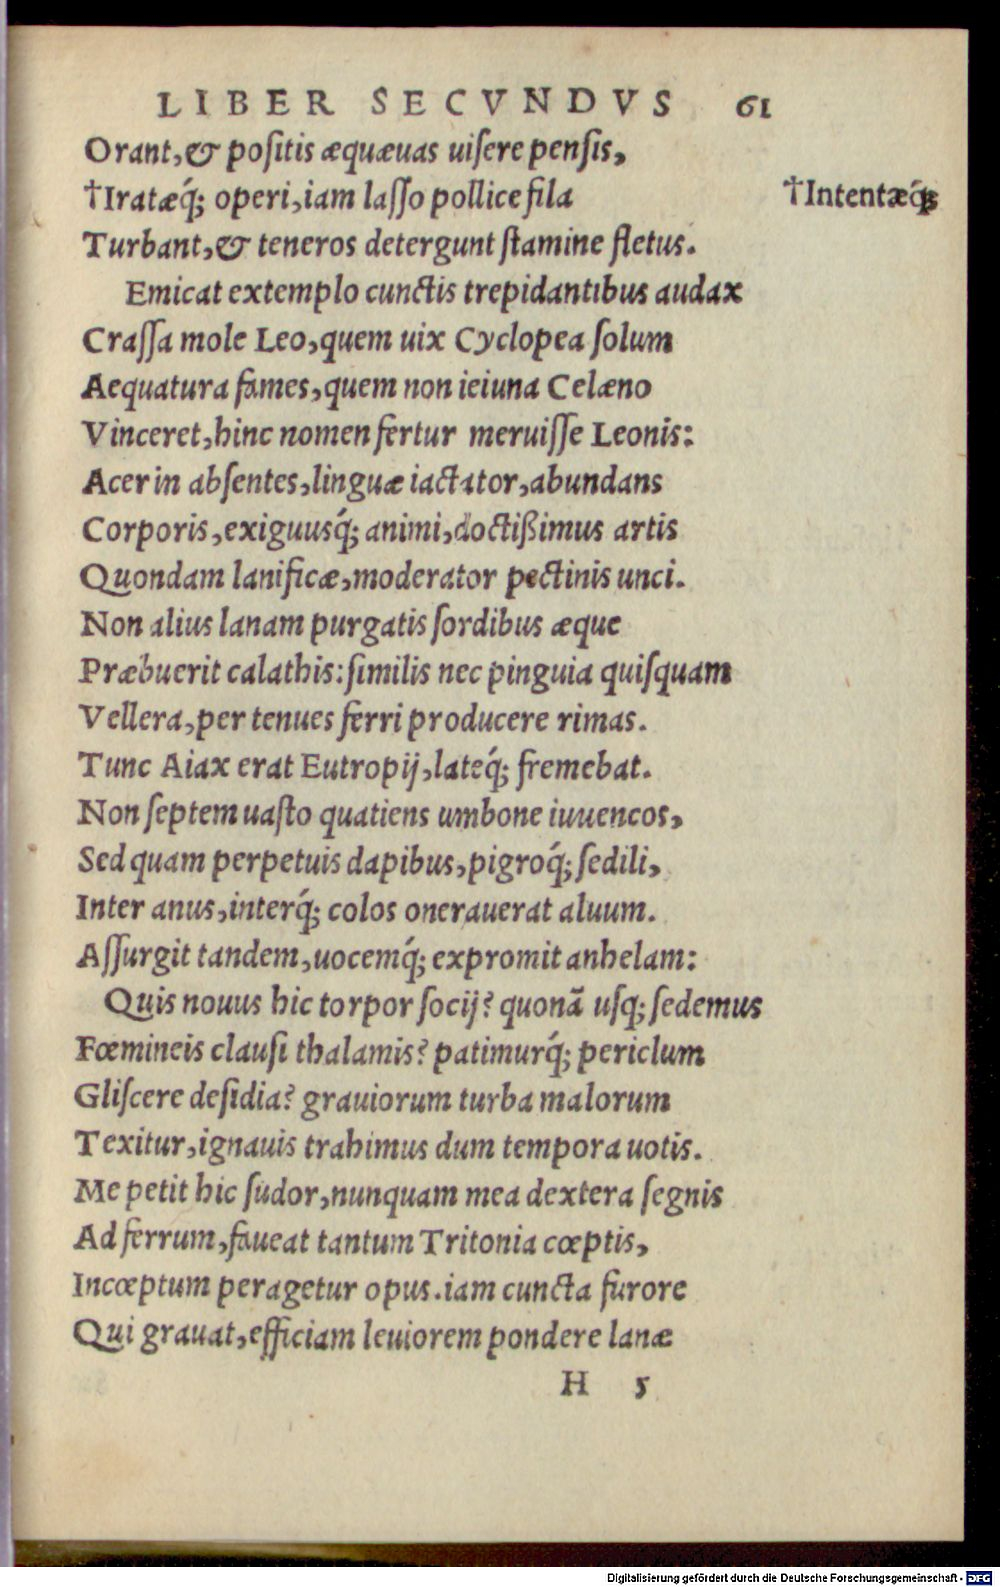 LIBER SECVNDVS 61
Orant,& positis æquæuas uisere pensis,
†Iratæq́; operi,iam lasso pollice fila †Intentæq́;
Turbant,& teneros detergunt stamine fletus.
Emicat extemplo cunctis trepidantibus audax
Crassa mole Leo,quem uix Cyclopea solum
Aequatura fames,quem non ieiuna Celæno
Vinceret,hinc nomen fertur meruisse Leonis:
Acer in absentes,linguæ iactator,abundans
Corporis,exiguusq́; animi,doctißimus artis
Quondam lanificæ,moderator pectinis unci.
Non alius lanam purgatis sordibus æque
Præbuerit calathis:similis nec pinguia quisquam
Vellera,per tenues ferri producere rimas.
Tunc Aiax erat Eutropij,lateq́; fremebat.
Non septem uasto quatiens umbone iuuencos,
Sed quam perpetuis dapibus,pigroq́; sedili,
Inter anus,interq́; colos onerauerat aluum.
Assurgit tandem,uocemq́; expromit anhelam:
Quis nouus hic torpor socij? quonã usq; sedemus
Fœmineis clausi thalamis? patimurq́; periclum
Gliscere desidia? grauiorum turba malorum
Texitur,ignauis trahimus dum tempora uotis.
Me petit hic sudor,nunquam mea dextera segnis
Ad ferrum,faueat tantum Tritonia cœptis,
Incœptum peragetur opus.iam cuncta furore
Qui grauat,efficiam leuiorem pondere lanæ
H 5
Digitalisierung gefördert durch die Deutsche Forschungsgemeinschaft - DFG